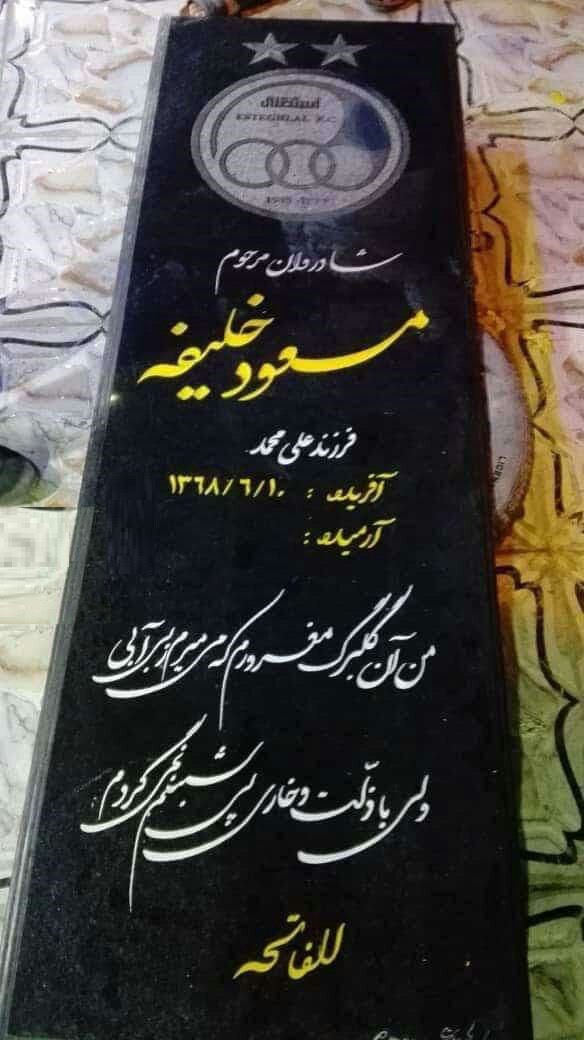 استقلال
ESTEGHLAL F.C
شادروان مرحوم
مسعود خلیفه
فرزند علی محمد
آفرید : ۱۳۶۸/۶/۱۰
آرمید :
من آن گلبرگ مغرورم که می میرم ز بی آبی
ولی با ذلّت و خاری پی شبنم نمی گردم
للفاتحه